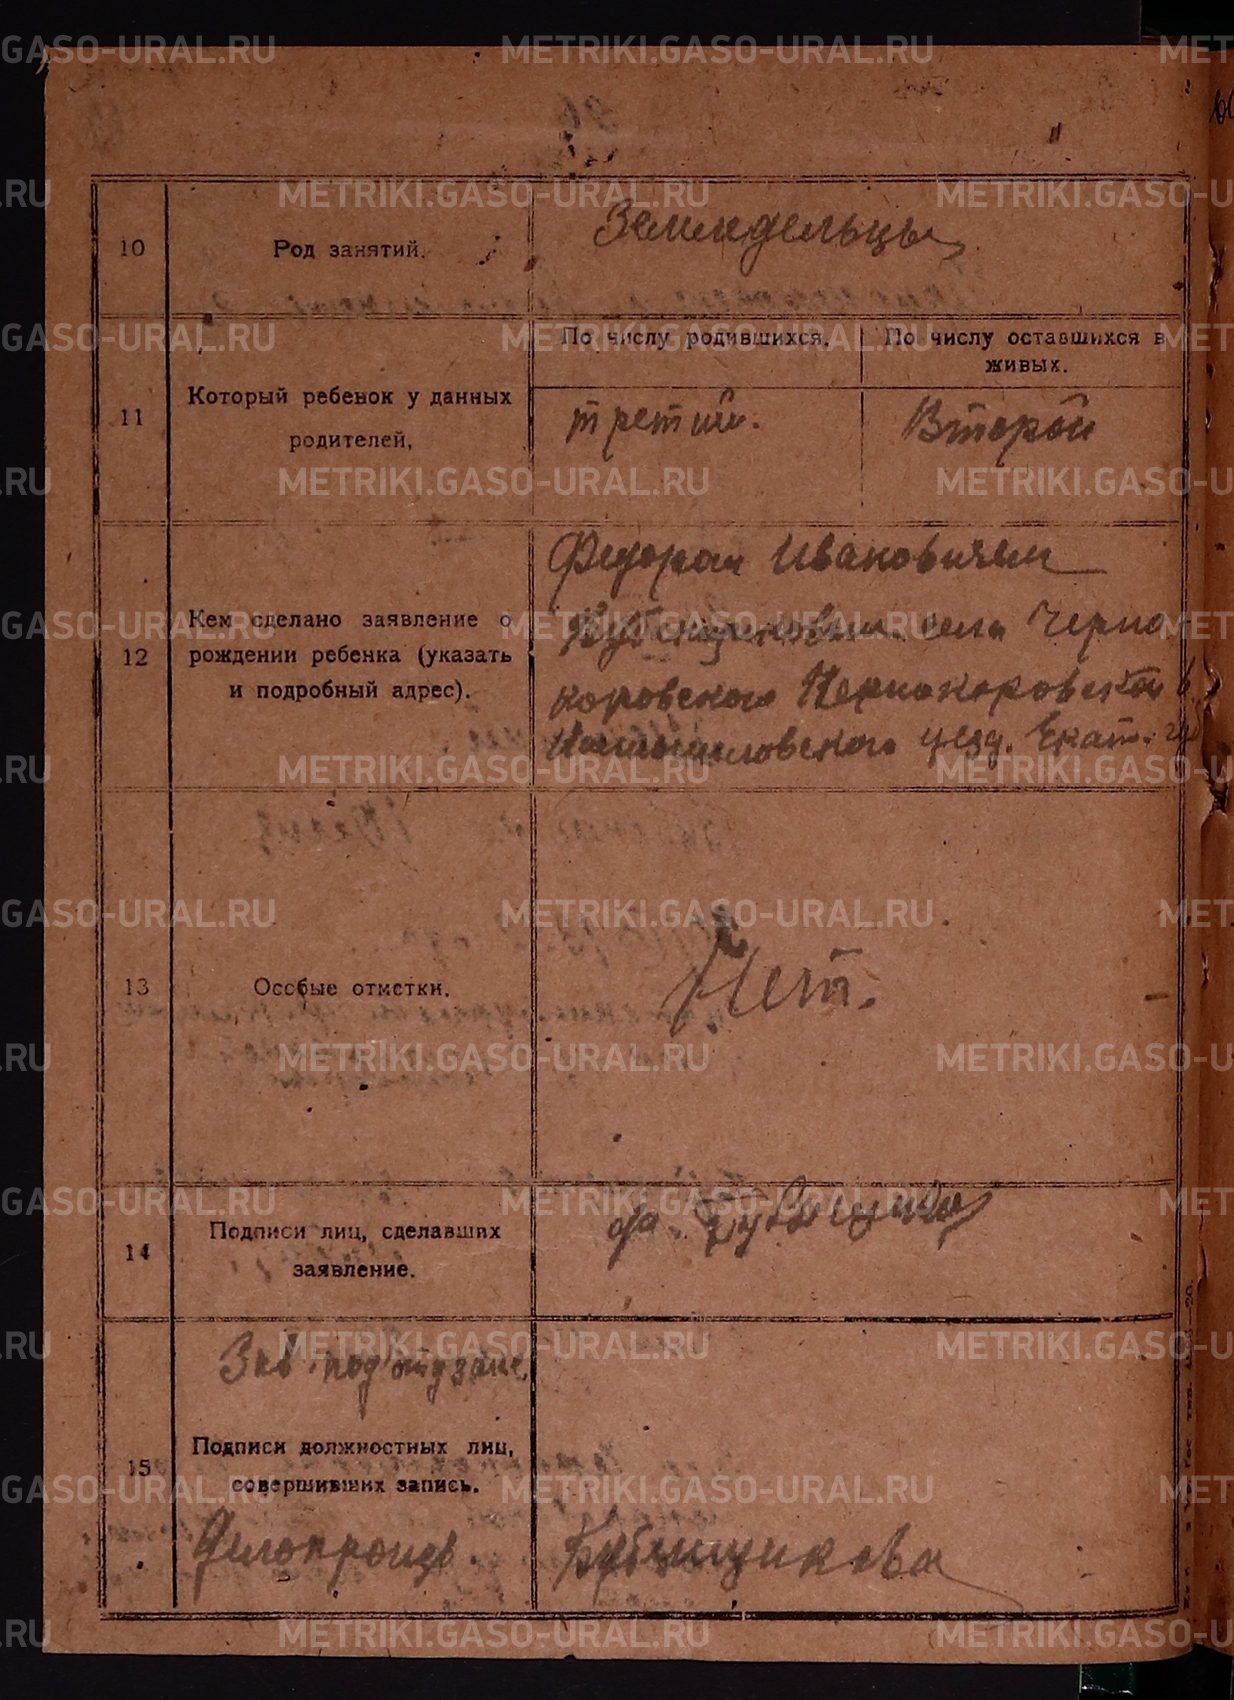 10
Род занятий.
Земледельцы
11
Который ребенок у данных
родителей,
По числу родившихся.
По числу оставшихся в
живых.
третий.
Второй
12
Кем сделано заявление о
рождении ребенка (указать
и подробный адрес).
Федором Ивановичем
Бубенщиковым села Черно
коровского Чернокоровской в.
Камышловского уезд. Екат. губ
13
Особые отметки.
Нет.
14
Подписи лиц, сделавших
заявление.
15
Зав. под'отд запис
Подписи должностных лиц,
совершивших запись.
Делопроизв.
Бубенщикова
METRIKI.GASO-URAL.RU